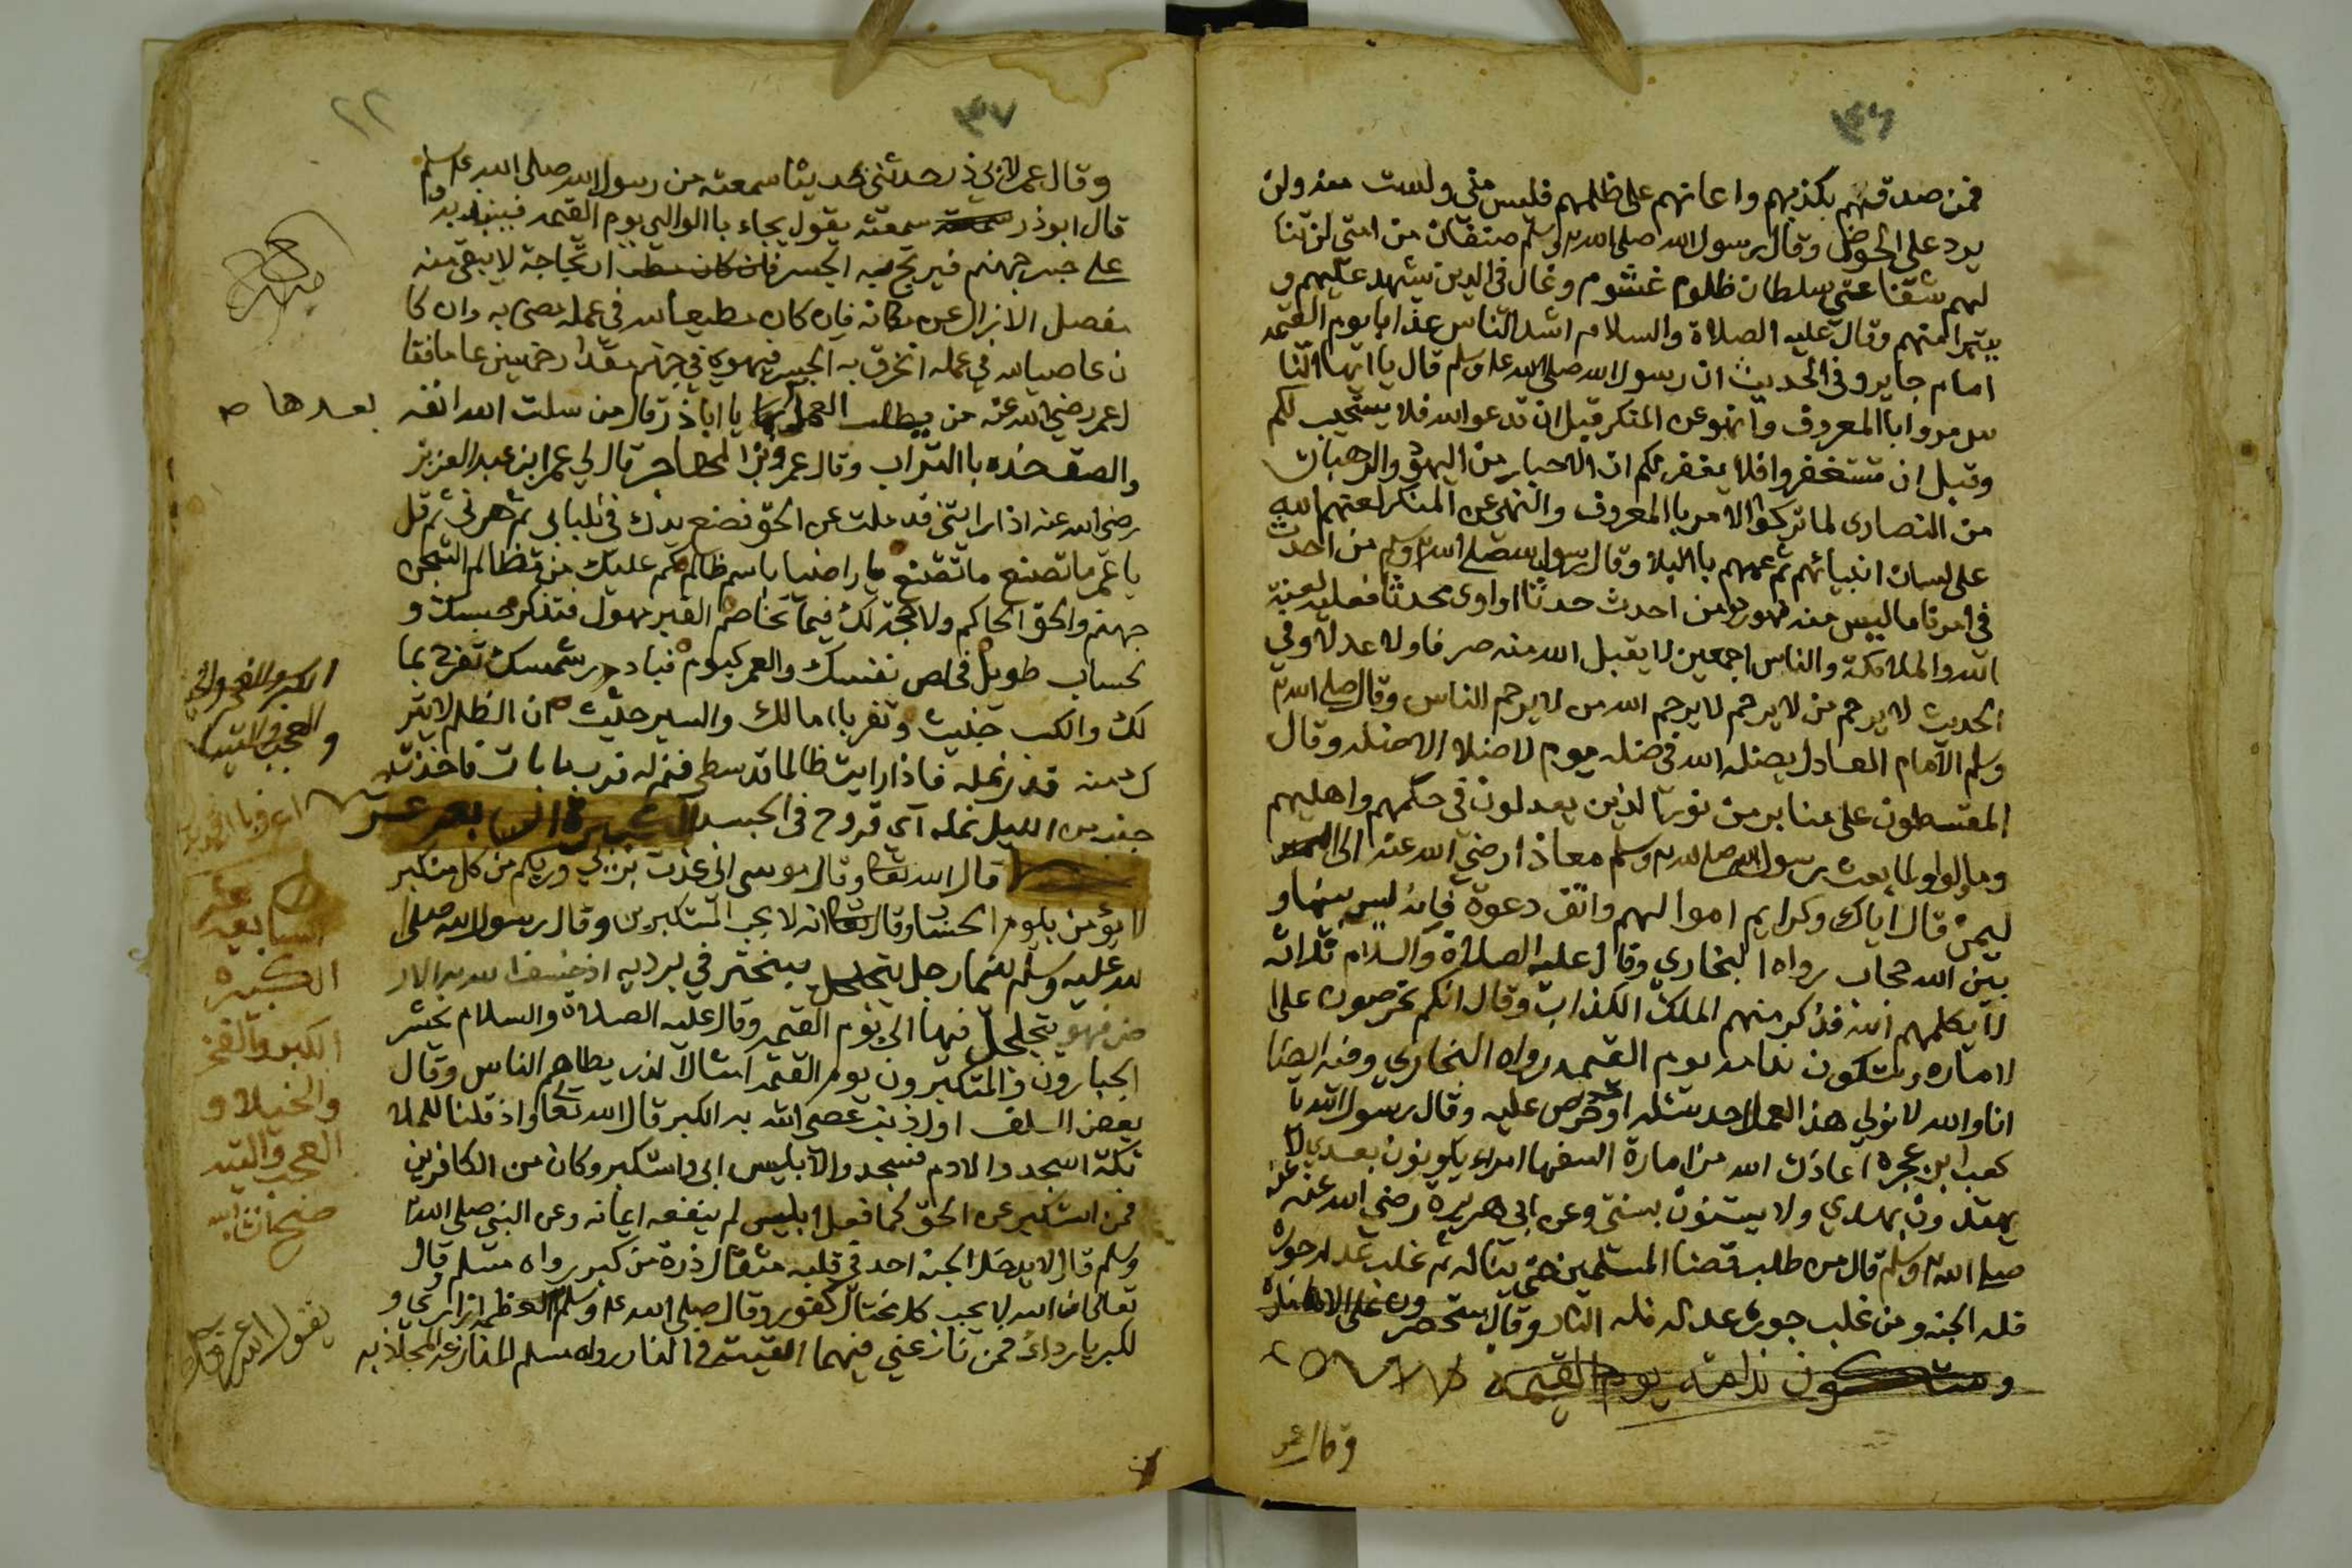 ٣٦
فمن صدقهم بكذبهم واعانهم على ظلمهم فليس مني ولست منه ولن
يرد على الحوض وقال رسول الله صلى الله وسلم صنفان من امتي لن تنا
لهم شفاعتي سلطان ظلوم غشوم وغال في الدين يشهد عليهم و
يتبرا منهم وقال عليه الصلاة والسلام اشد الناس عذابا يوم القيمه
امام جاير وفي الحديث ان رسول الله صلى الله عليه وسلم قال يا ايها النا
س مروا باالمعروف وانهو عن المنكر قبل ان تدعوا الله فلا يستجيب لكم
وقبل ان تستغفروا فلا يغفر لكم ان الاحبار من اليهود والرهبان
من النصارى لما تركوا الامر باالمعروف والنهي عن المنكر لعنهم الله
على لسان انبيائهم ثم عمهم باالبلا وقال رسول الله صلى الله وسلم من احدث
في امرنا ما ليس منه فهو رد من احدث حدثا او اوى محدثا فعليه لعنة
الله والملائكة والناس اجمعين لا يقبل الله منه صرفا ولا عدلا وفي
الحديث لا يرحم من لا يرحم لا يرحم الله من لا يرحم الناس وقال صلى الله
وسلم الامام العادل يضله الله في ضله يوم لا ضلا الا ضله وقال
المقسطون على منابر من نور الذين يعدلون في حكمهم واهليهم
وما ولوا ولما بعث رسول الله صلى الله وسلم معاذا رضي الله عنه الى
ليمن قال اياك وكرايم اموالهم واتق دعوة فانه ليس بينها و
بين الله حجاب رواه البخاري وقال عليه الصلاة والسلام ثلاثه
لا يكلمهم الله فذكر منهم الملك الكذاب وقال انكم تحرصون على ا
لاماره وستكون ندامه يوم القيمه رواه البخاري وفيه ايضا
انا والله لا نولي هذا العمل احد سئله او حرص عليه وقال رسول الله يا
كعب ابن عجره اعاذك الله من امارة السفها امراء يكونون بعدي لا
يهتدون بهدي ولا يستنون بسنتي وعن ابي هريرة رضي الله عنه عنه
صلى الله وسلم قال من طلب قضا المسلمين حتى يناله ثم غلب عدله جوره
فله الجنه ومن غلب جوره عدله فله النار وقال ستحصرون على الاماره
وستكون ندامة يوم القيمة
وقال عمر
٣٧
٢٢
وقال عمر لابي ذر حدثني بحديثا سمعته من رسول الله صلى الله عليه وسلم
قال ابوذر سمعته يقول يجاء باالوالي يوم القيمه فينبذ به
على جسر جهنم فيرتج به الجسر ارتجاجة لا يبقى منه
مفصل الا نزال عن مكانه فان كان مطيعا لله في عمله مضى به وان كا
ن عاصيا لله في عمله انخرق به الجسر فيهوي في جهنم مقدار خمسين عاما فقا
ل عمر رضي الله عنه من يطلب العمل يا اباذر قال من سلت الله انفه
بعدها
والصق خده باالتراب وقال عمرو ابن المهاجر قال لي عمر ابن عبد العزيز
رضي الله عنه اذا رايتني قد ملت عن الحق فضع يدك في تلبابي ثم هزني ثم قل
يا عمر ما تصنع ما تصنع يا راضيا باسم ظالم كم عليك من مظالم السجن
جهنم والحق الحاكم ولا حجة لك فيما تخاصم القبر مهول فتذكر حبسك و
لحساب طويل فخلص نفسك والعمر كيوم فبادر شمسك تفرح بما
لك والكسب خبيث وتفر باامالك والسير حثيث ان الظلم لا يتر
ك منه قدر نمله فاذا رايت ظالما قد سطى فنم له فرب ما بات فاخذت
جنبه من الليل نمله اي قروح في الجسد الكبيرة السابعه عشر
قال الله تعا وقال موسى اني عذت بربي وربكم من كل متكبر
لا يؤمن بيوم الحساب وقال تعا انه لا يحب المتكبرين وقال رسول الله صلى ا
لله عليه وسلم بينما رجل يتبختر في برديه اذ خسف الله به الار
ض فهو يتجلجل فيها الى يوم القيمه وقال عليه الصلاة والسلام يحشر
الجبارون والمتكبرون يوم القيمه امثال الذر يطاهم الناس وقال
بعض السلف اول ذنب عصي الله به الكبر قال الله تعا واذ قلنا للملا
ئكة اسجدوا لادم فسجدوا الا ابليس ابى واستكبر وكان من الكافرين
فمن استكبر عن الحق كما فعل ابليس لم ينفعه ايمانه وعن النبي صلى الله
وسلم قال لا يدخل الجنه احد في قلبه مثقال ذرة من كبر رواه مسلم وقال
تعالى ان الله لا يحب كل مختال كفور وقال صلى الله عليه وسلم العظمه ازاري و
لكبريا ردائ فمن نازعني فيهما القيته في النار رواه مسلم المنازعه المجاذبه
الكبر والفخر والخي
والعجب والتيه
السابعه عشر
الكبيرة
الكبر والفخر
والخيلاء و
العجب والتيه
صح انشاء الله
يقول الله عز وجل